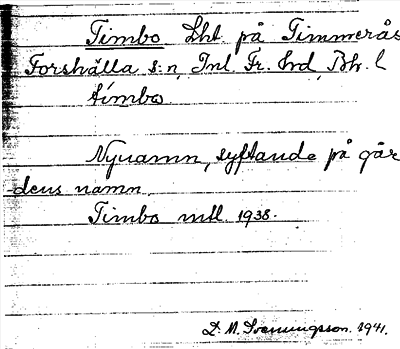 Timbo Lht på Timmerås
Forshälla s:n, Inl. Fr. hrd, Bh. l
timbo
Nynamn, syftande på går
-dens namn.
Timbo mtl. 1938.
D. M. Svenningsson. 1941.